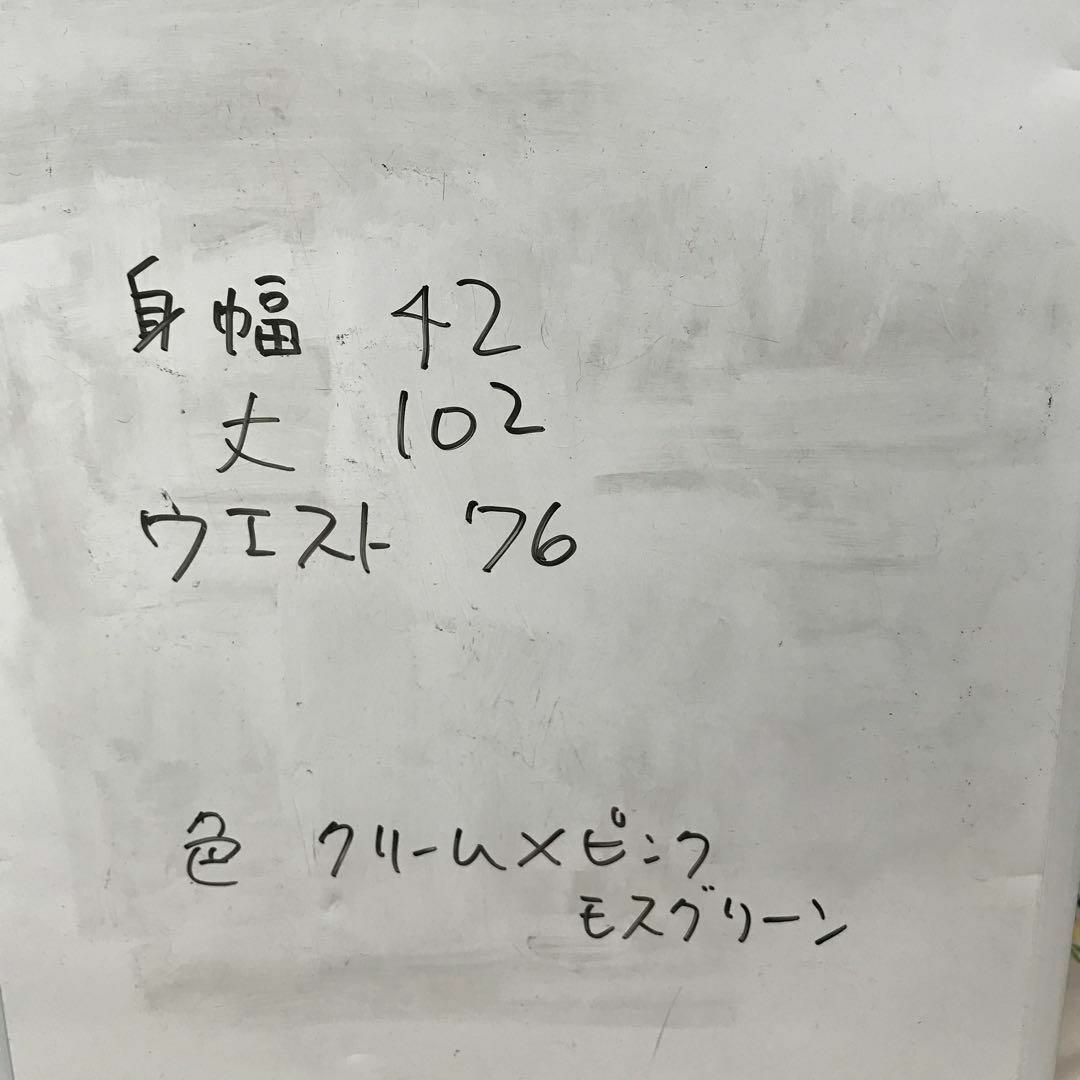 身幅 42
丈 102
ウエスト 76
色 クリーム×ピンク
モスグリーン